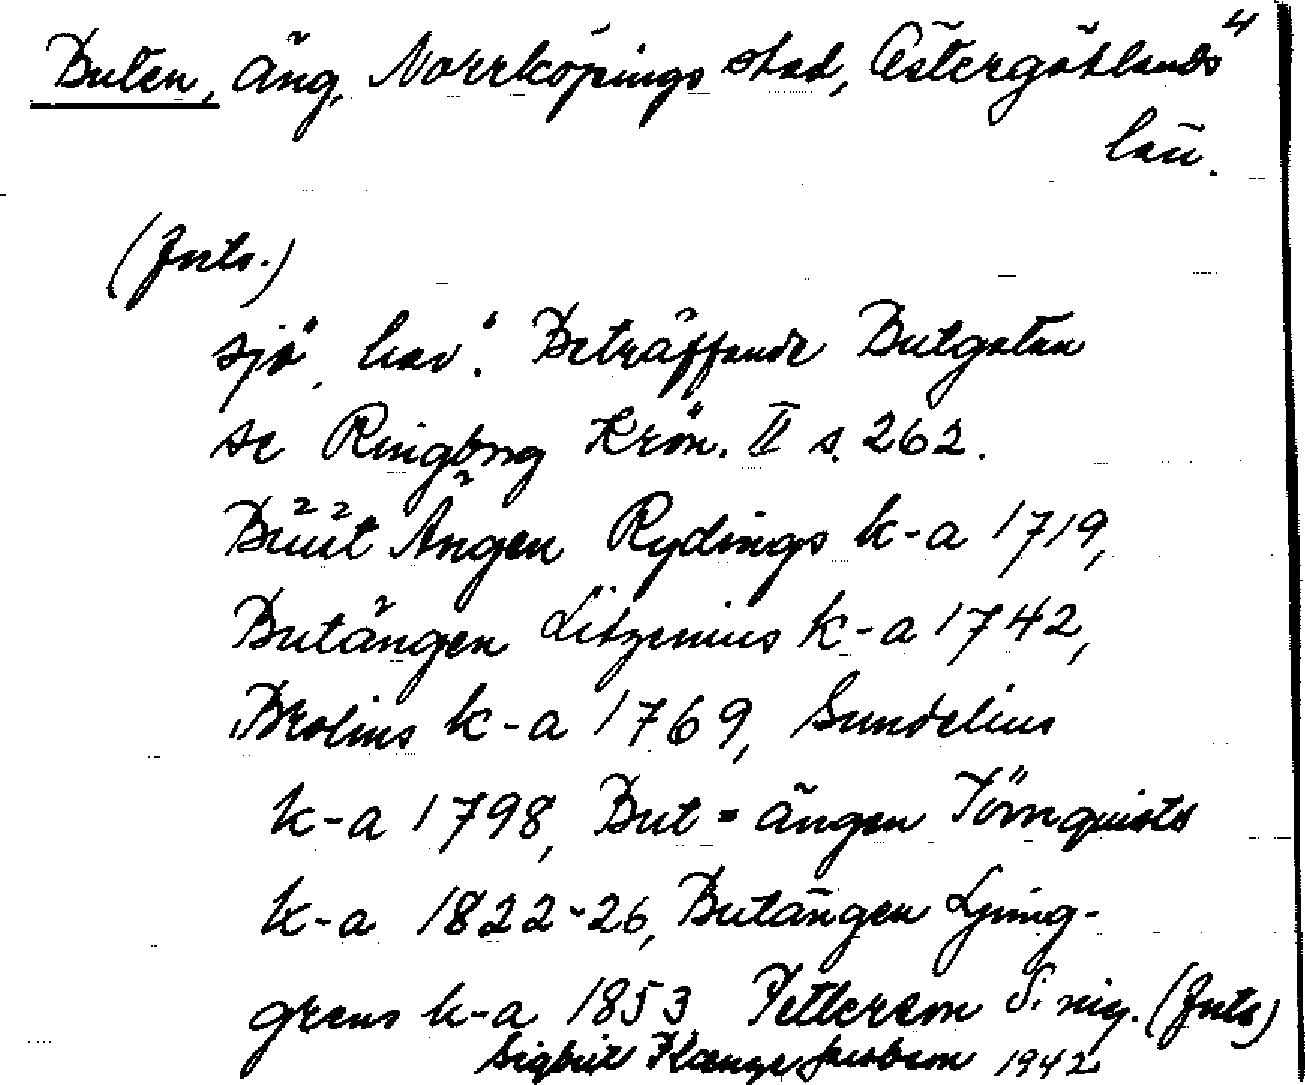 4
Buten, äng, Norrköpings stad, Östergötlands
län.
(forts.)
sjö, hav". Beträffande Butgatan
se Ringborg Krön. II s. 262.
Buut Ängen Rydings k-a 1719,
Butängen Litzenius k-a 1742,
Brolins k-a 1769, Sundelius
k-a 1798, But = ängen Törnquists
k-a 1822-26, Butängen Ljung-
grens k-a 1853 Petterson (forts)
Sigbrit Jacobson 1942